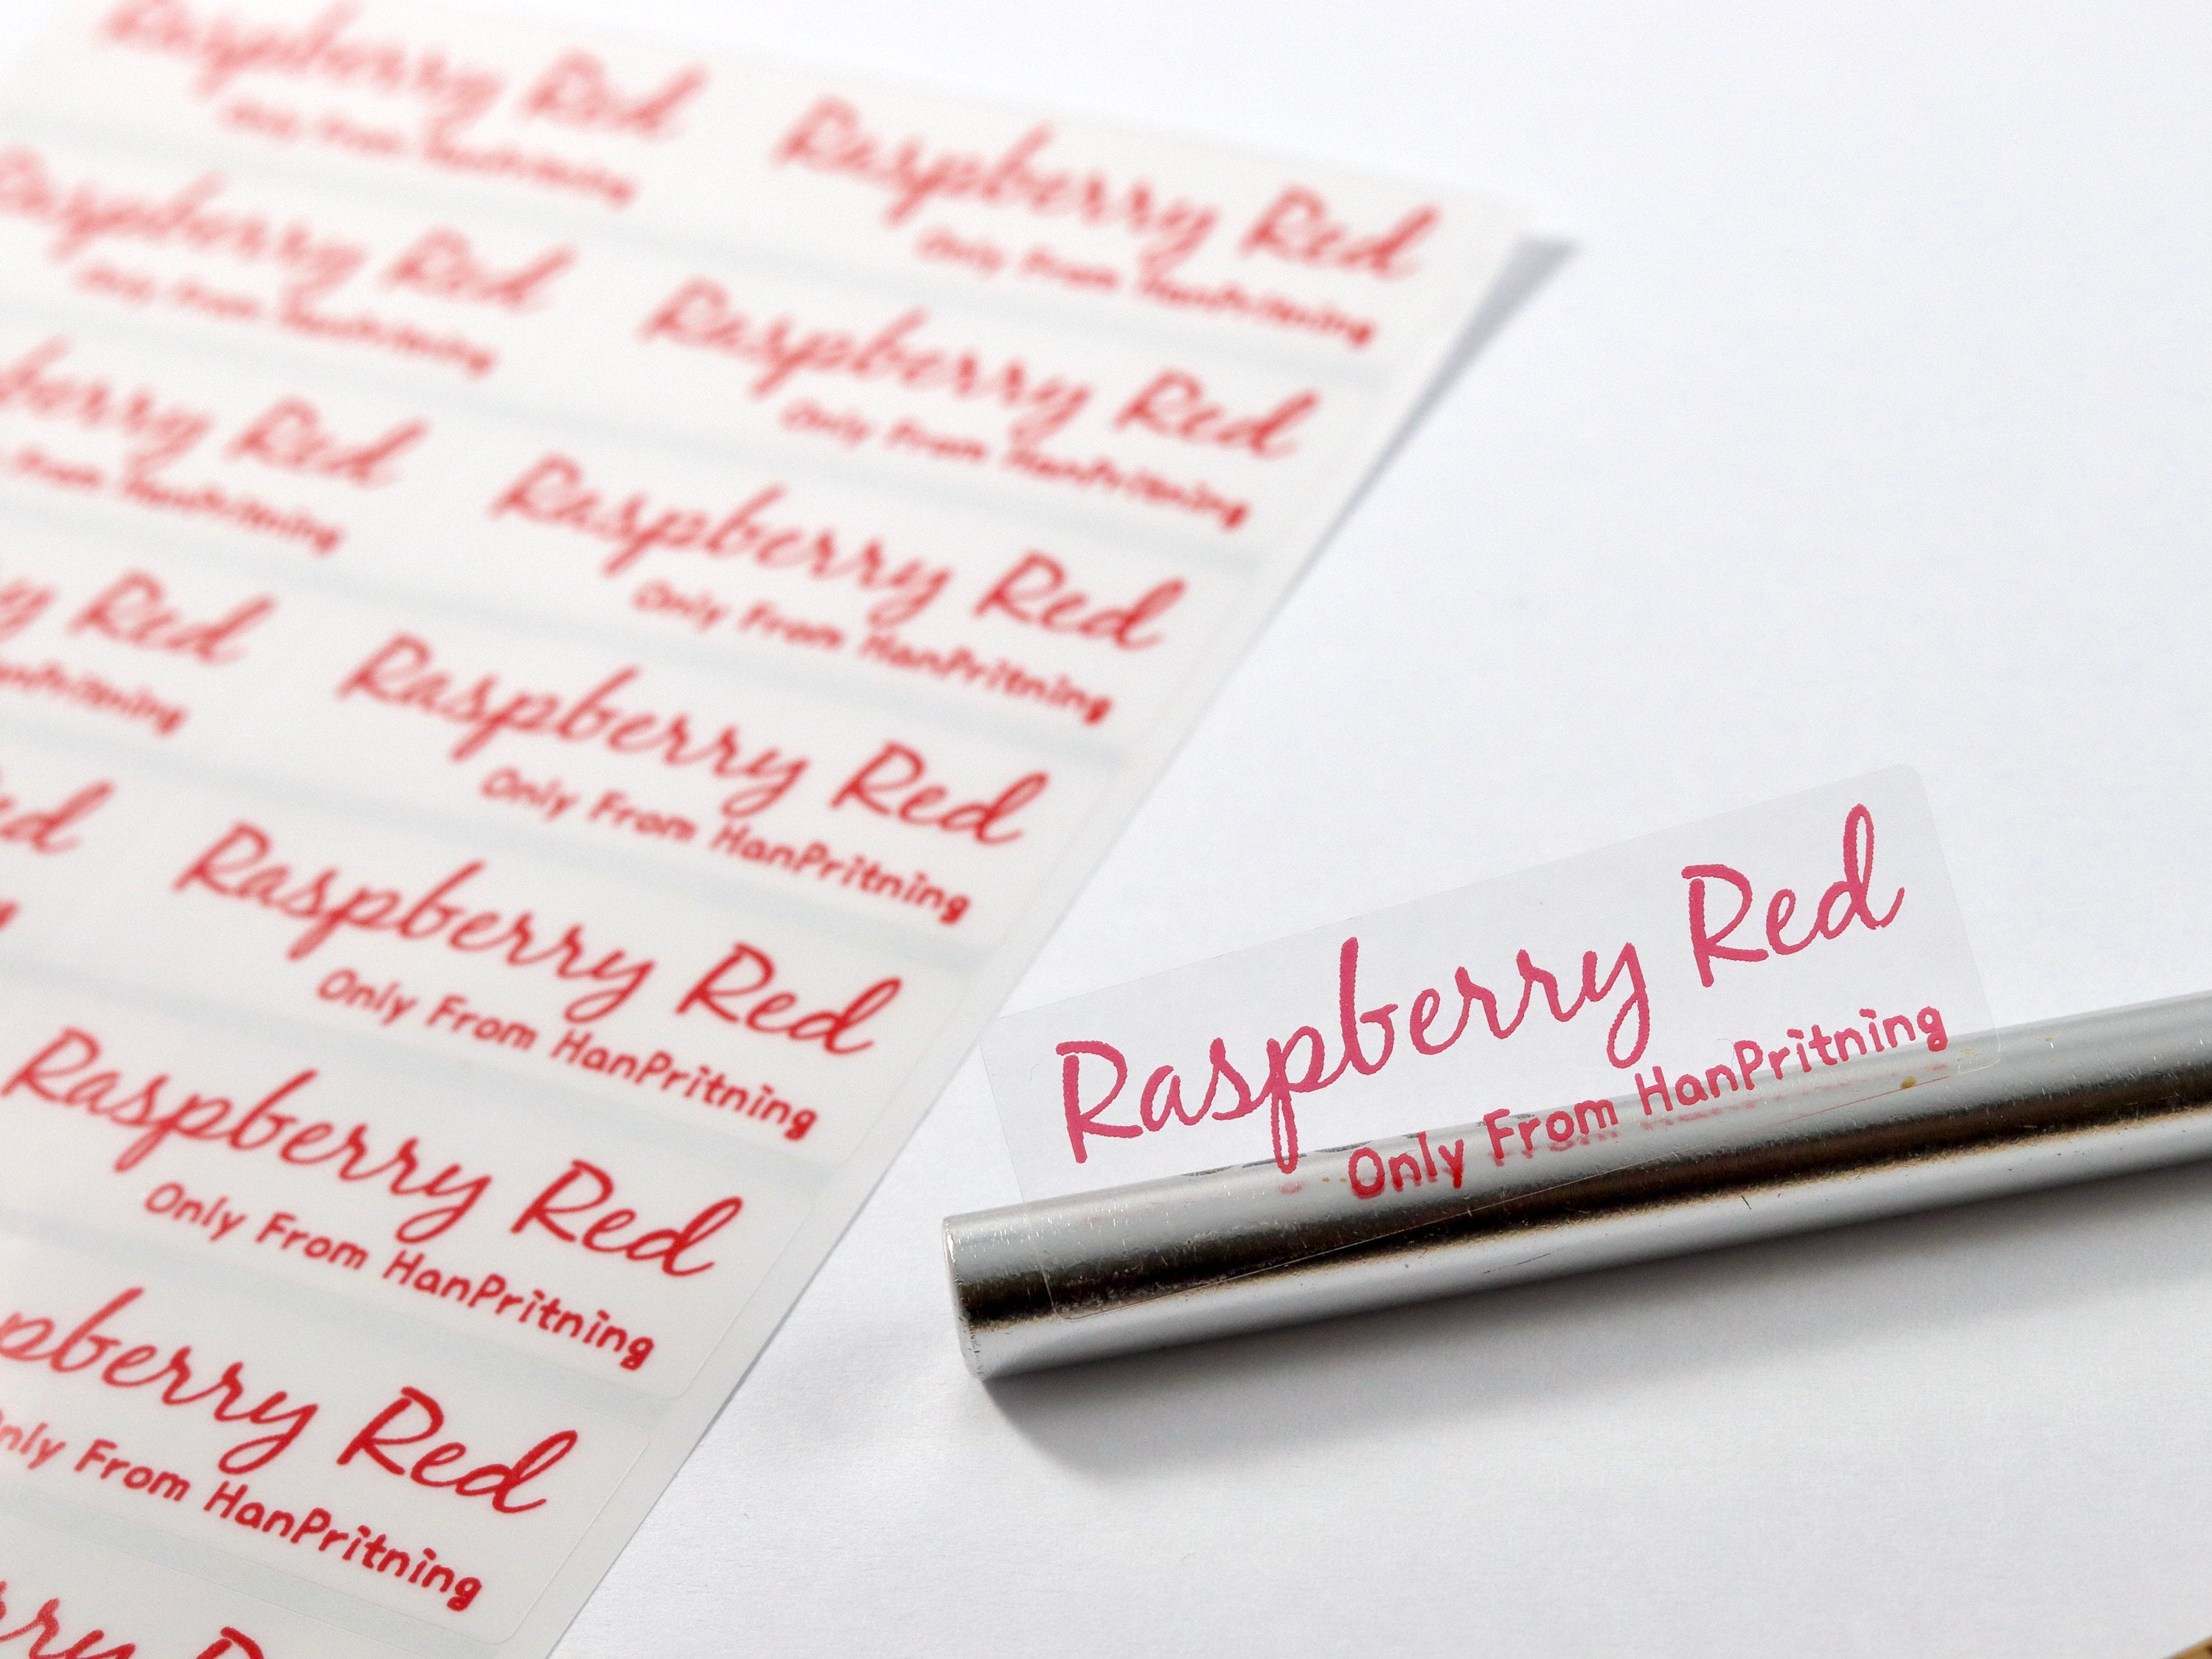 Raspberry Red
Only From HanPritning
Raspberry Red
Only From HanPritning
Raspberry Red
Only From HanPritning
Raspberry Red
Only From HanPritning
Raspberry Red
Only From HanPritning
Raspberry Red
Only From HanPritning
berry Red
From HanPritning
Raspberry Red
Only From HanPritning
y Red
HanPritning
Raspberry Red
Only From HanPritning
Red
Raspberry Red
Only From HanPritning
Raspberry Red
Only From HanPritning
pberry Red
Only From HanPritning
Raspberry Red
Only From HanPritning